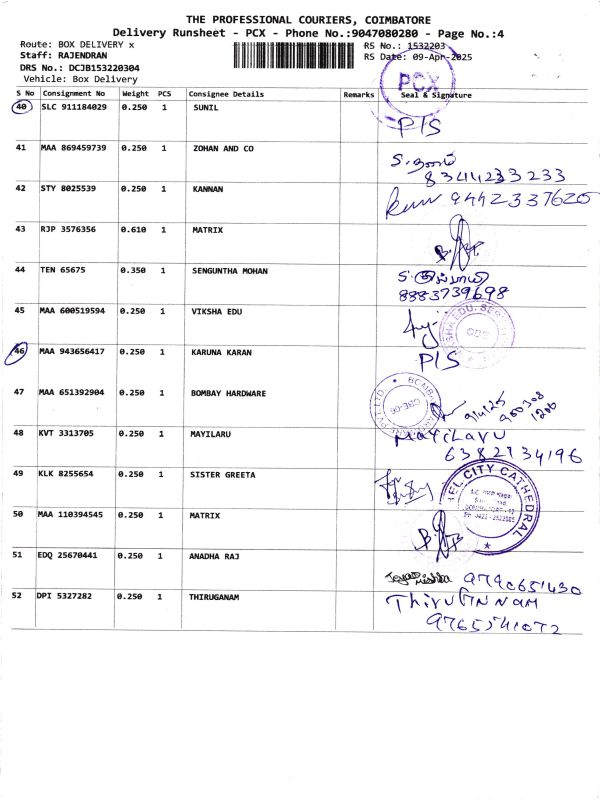 THE PROFESSIONAL COURIERS, COIMBATORE
Delivery Runsheet - PCX - Phone No.:9047080280 - Page No.:4
Route: BOX DELIVERY x
Staff: RAJENDRAN
DRS No.: DCJB153220304
Vehicle: Box Delivery
RS No.: 1532203
RS Date: 09-Apr-2025
PCX
S No Consignment No Weight PCS Consignee Details Remarks Seal & Signature
40 SLC 911184029 0.250 1 SUNIL P/S
41 MAA 869459739 0.250 1 ZOHAN AND CO
8344233233
42 STY 8025539 0.250 1 KANNAN 9442337620
43 RJP 3576356 0.610 1 MATRIX
44 TEN 65675 0.350 1 SENGUNTHA MOHAN
8883739698
45 MAA 600519594 0.250 1 VIKSHA EDU
46 MAA 943656417 0.250 1 KARUNA KARAN P/S
47 MAA 651392904 0.250 1 BOMBAY HARDWARE 9/4/25
48 KVT 3313705 0.250 1 MAYILARU MAYILAVU
6382734196
49 KLK 8255654 0.250 1 SISTER GREETA
EL CITY CATHEDRAL
50 MAA 110394545 0.250 1 MATRIX
51 EDQ 25670441 0.250 1 ANADHA RAJ
52 DPI 5327282 0.250 1 THIRUGANAM